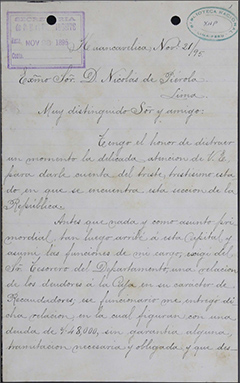 SECRETARIA
NOV 29 1895
BIBLIOTECA NACIONAL
Huancavelica, Novr. 21/95
Exmo Sor. D. Nicolás de Piérola
Lima
Muy distinguido Sor y amigo:
Tengo el honor de distraer
un momento la delicada atencion de V.E.
para darle cuenta del triste, tristísimo esta
do en que se encuentra esta seccion de la
República.
Antes que nada y como asunto pri
mordial, tan luego arribé á esta Capital y
asumí las funciones de mi cargo, exigí del
Sor Tesorero del Departamento, una relacion
de los deudores á la Caja en su carácter de
Recaudadores; ese funcionario me entregó di
cha relacion, en la cual figuran con una
deuda de $48,000, sin garantía alguna,
tramitacion necesaria y obligada y que des